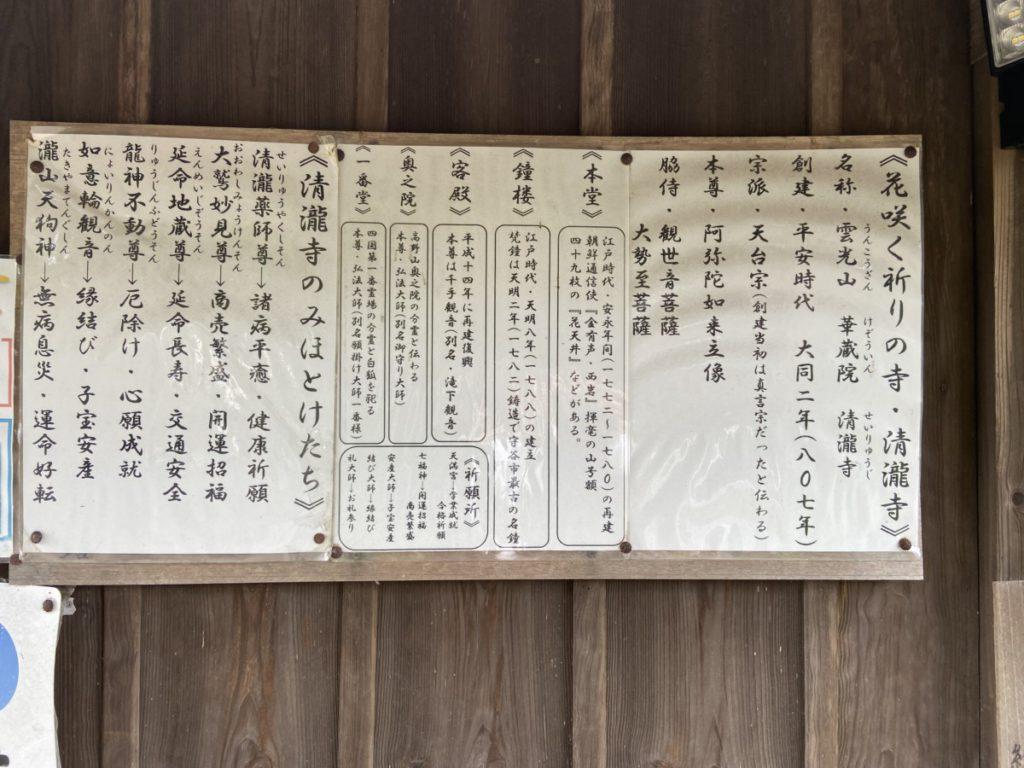 《花咲く祈りの寺・清瀧寺》
名称・雲光山 華蔵院 清瀧寺
うんこうざん けぞういん せいりゅうじ
創建・平安時代 大同二年(八〇七年)
宗派・天台宗(創建当初は真言宗だったと伝わる)
本尊・阿弥陀如来立像
脇侍・観世音菩薩
大勢至菩薩
《本堂》
江戸時代・安永年間(一七七二~一七八〇)の再建
朝鮮通信使『金有声・西岩』揮毫の山子額
四十九枚の『花天井』などがある。
《鐘楼》
江戸時代・天明八年(一七八八)の建立
梵鐘は天明二年(一七八二)鋳造で守谷市最古の名鐘
《客殿》
平成十四年に再建復興
本尊は千手観音(別名・滝下観音)
《奥之院》
高野山奥之院の分霊と伝わる
本尊・弘法大師(別名御守り大師)
《一番堂》
四国第一番霊場の分霊と白狐を祀る
本尊・弘法大師(別名願掛け大師一番様)
《祈願所》
天満宮→学業成就
合格祈願
七福神→開運招福
商売繁盛
安産大師→子宝安産
結び大師→縁結び
礼大師→お礼参り
《清瀧寺のみほとけたち》
せいりゅうやくしそん
清瀧薬師尊→諸病平癒・健康祈願
おおわしみょうけんそん
大鷲妙見尊→商売繁盛・開運招福
えんめいじぞうそん
延命地蔵尊→延命長寿・交通安全
りゅうじんふどうそん
龍神不動尊→厄除け・心願成就
にょいりんかんのん
如意輪観音→縁結び・子宝安産
たきやまてんぐしん
瀧山天狗神→無病息災・運命好転